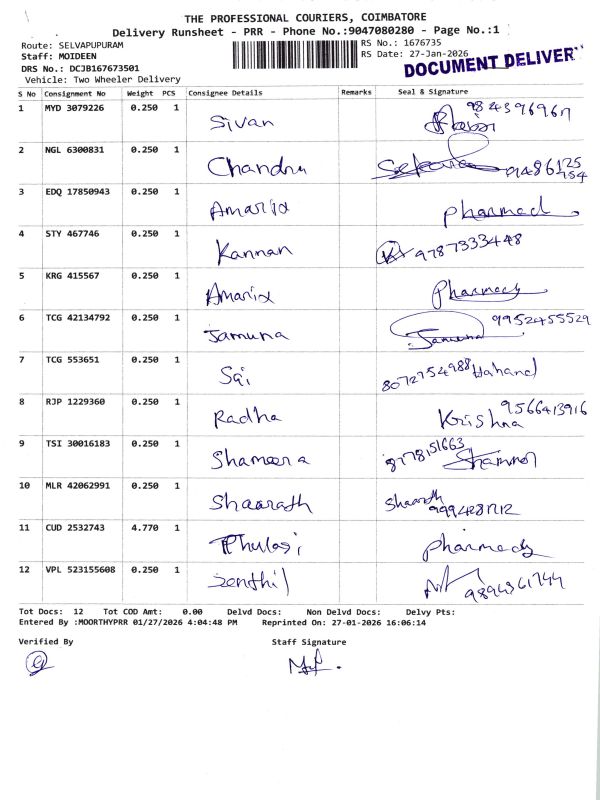 THE PROFESSIONAL COURIERS, COIMBATORE
Delivery Runsheet - PRR - Phone No.:9047080280 - Page No.:1
Route: SELVAPUPURAM
RS No.: 1676735
Staff: MOIDEEN
RS Date: 27-Jan-2026
DOCUMENT DELIVER
DRS No.: DCJB167673501
Vehicle: Two Wheeler Delivery
S No Consignment No Weight PCS Consignee Details Remarks Seal & Signature
1 MYD 3079226 0.250 1 Sivan
2 NGL 6300831 0.250 1 Chandru
3 EDQ 17850943 0.250 1 Amarix
4 STY 467746 0.250 1 Kannan 9787333448
5 KRG 415567 0.250 1 Amarix Pharmacy
6 TCG 42134792 0.250 1 Jamuna Jamuna 9952455529
7 TCG 553651 0.250 1 Sai 8072754988
8 RJP 1229360 0.250 1 Radha Krishna 9566413916
9 TSI 30016183 0.250 1 Shameera 8778151663
10 MLR 42062991 0.250 1 Shaarath Sharath
11 CUD 2532743 4.770 1 Thulasi Pharmacy
12 VPL 523155608 0.250 1 Senthil 9894361744
Tot Docs: 12 Tot COD Amt: 0.00 Delvd Docs: Non Delvd Docs: Delvy Pts:
Entered By :MOORTHYPRR 01/27/2026 4:04:48 PM Reprinted On: 27-01-2026 16:06:14
Verified By Staff Signature